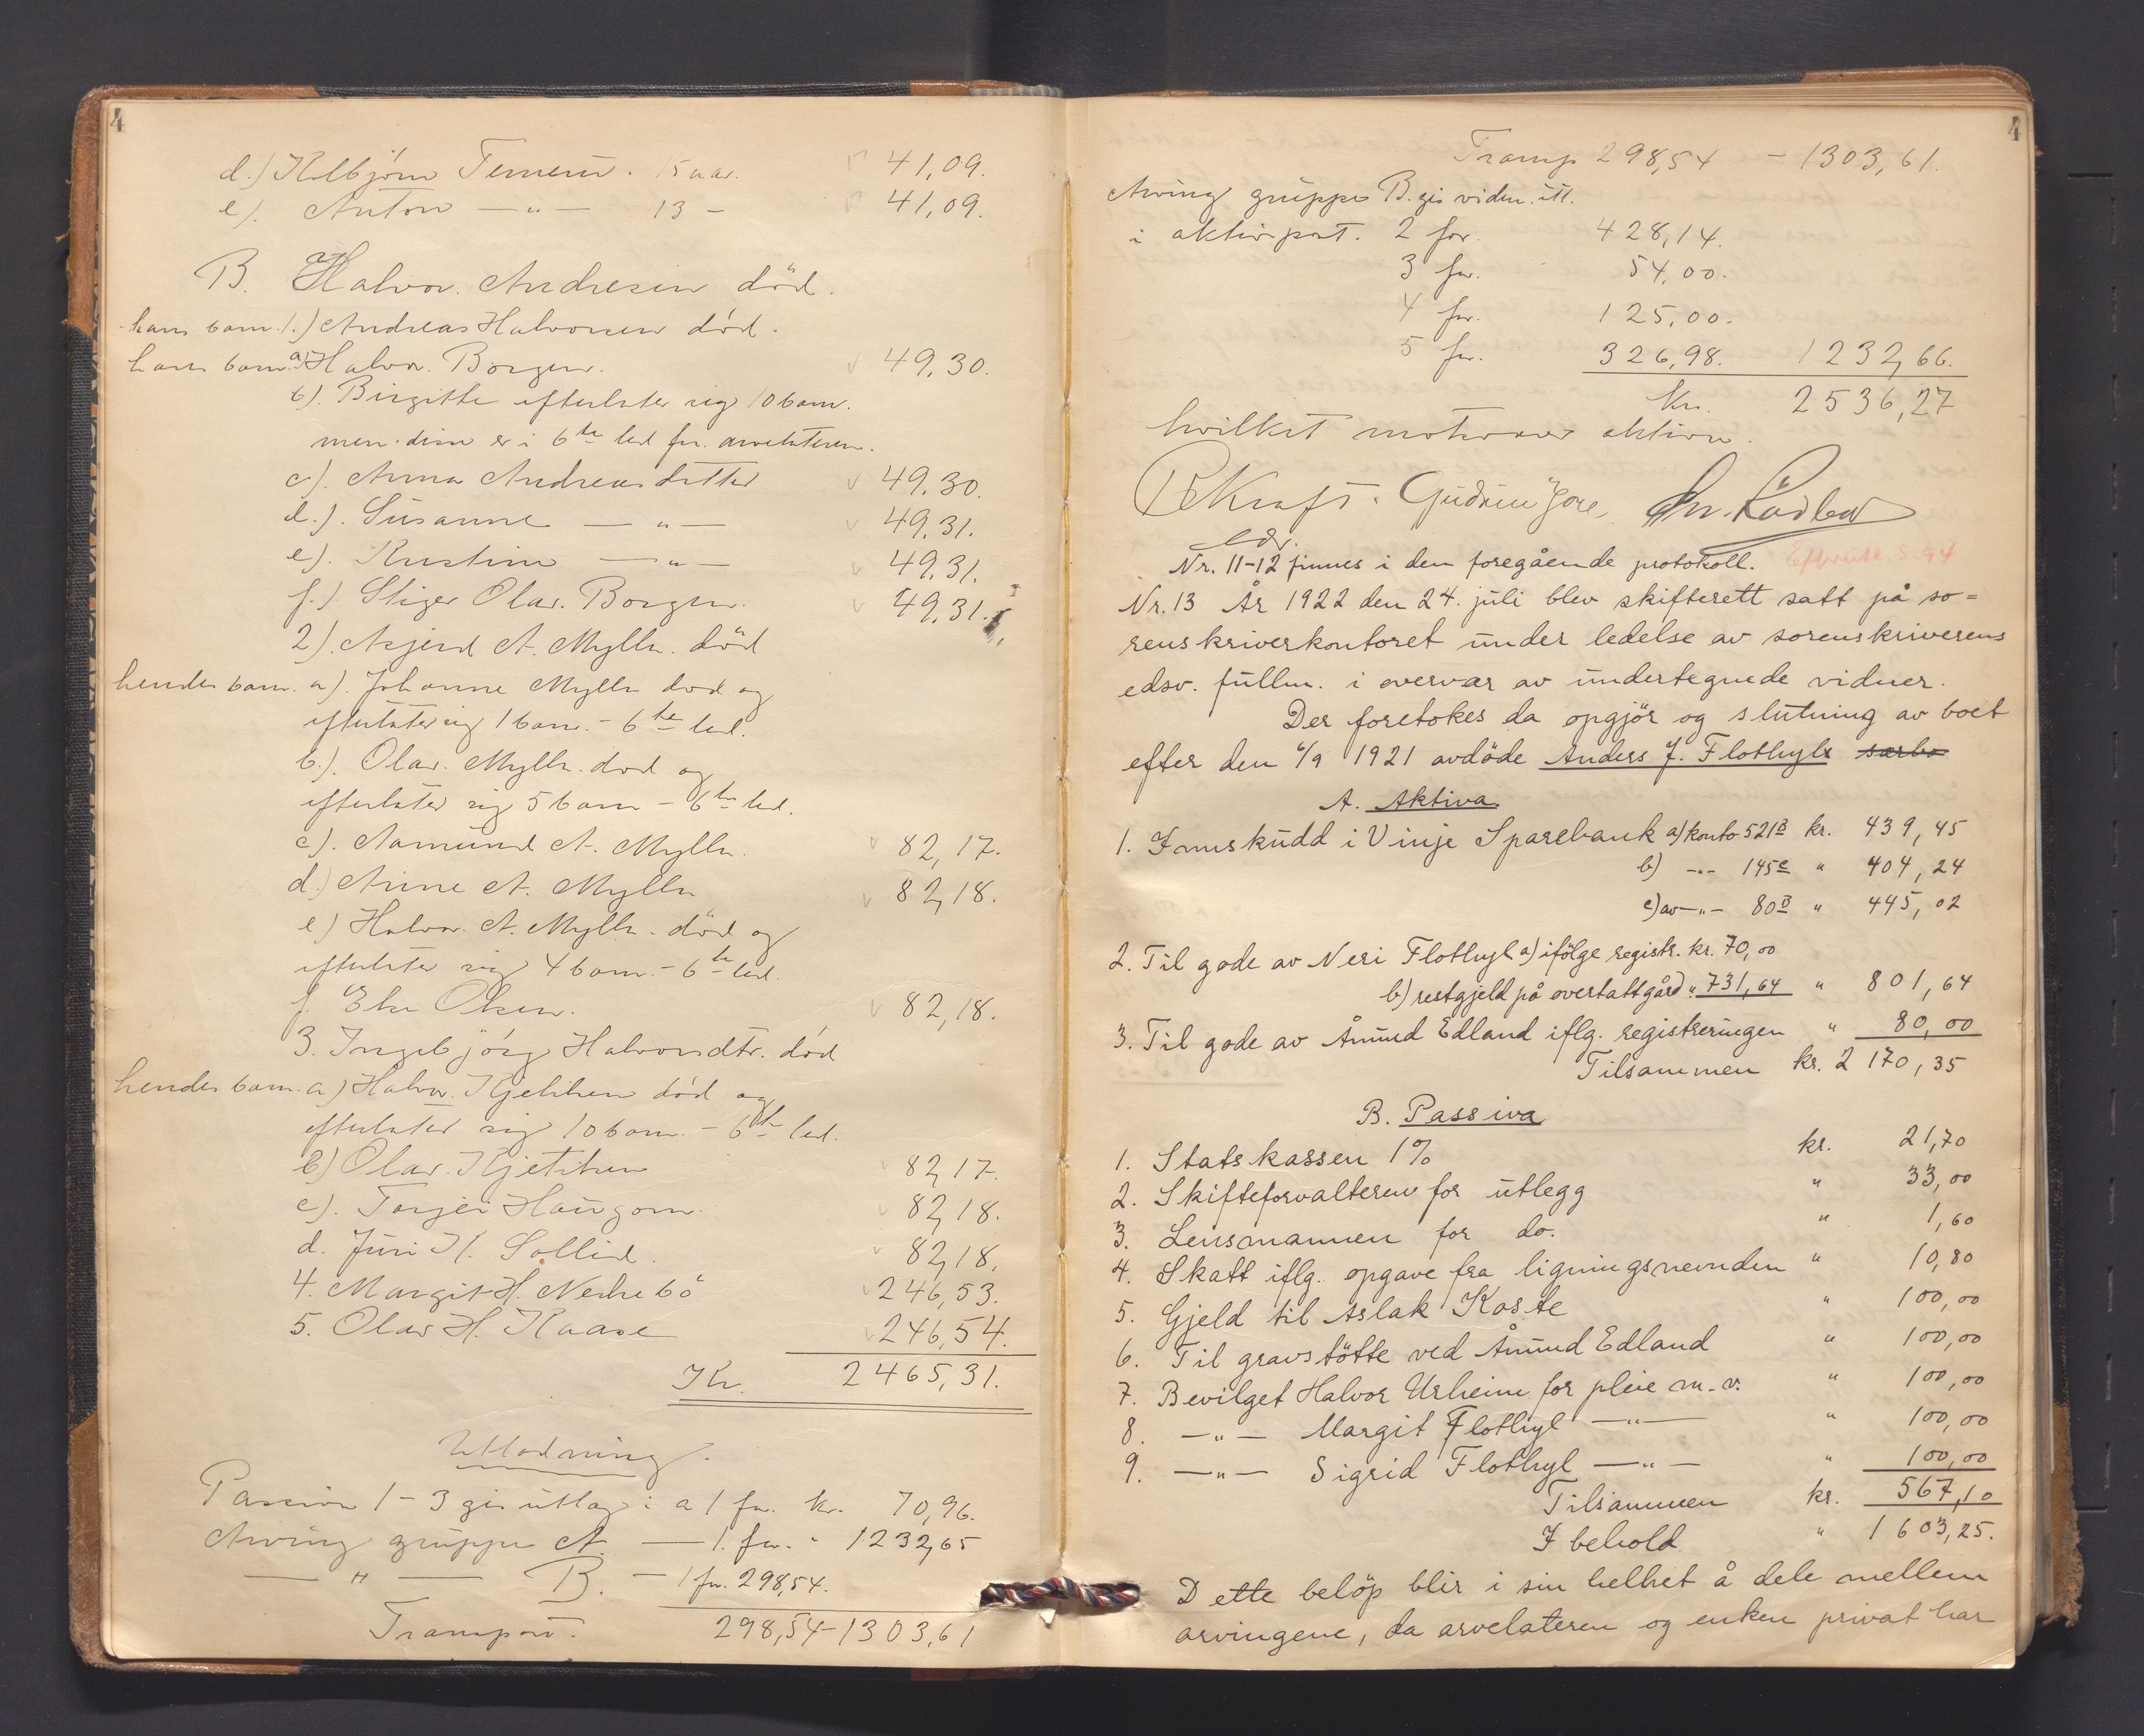 4
d.) Kolbjörn Temem. 15 aar. 41,09.
e). Anton —"— 13 - 41,09.
B. Halvor Andresen död.
hans barn 1.) Andreas Halvorsen död.
hans barn a) Halvor Borgen. 49,30.
b). Birgitte efterlater sig 10 barn.
men disse er i 6te led fra arvelateren.
c). Anna Andreasdatter 49,30.
d.). Susanne —"— 49,31.
e). Kristine —"— 49,31.
f.) Steger Olav. Borgen. 49,31.
2). Asjerd A. Mylla. död
hendes barn. a). Johanne Mylla död og
efterlater sig 1 barn. - 6te led.
b.). Olav. Mylla. död og
efterlater sig 5 barn - 6te led.
c). Aamund A. Mylla. 82,17.
d.) Anne A. Mylla 82,18.
e) Halvor A. Mylla. död og
efterlater sig 4 barn. - 6te led.
f. Olsen. 82,18.
3. Ingebjörg Halvorsdtr. död
hendes barn. a) Halvor. Kjetilsen död og
efterlater sig 10 barn. - 6te led.
b) Olav. Kjetilsen 82,17.
c). Torjer Haugom. 82,18.
d. Juri H. Sollid. 82,18.
4. Margit H. Nerhebö 246,53.
5. Olav H. Kaase 246,54.
Kr. 2465,31.
Utlodning.
Passiva 1-3 gis utlag i a 1 for kr. 70,96.
Arving gruppe A. — 1. for. " 1232,65
—"— B. — 1 for. 298,54.
Transport. 298,54 - 1303,61
4
Transp 298,54 - 1303,61.
Arving gruppe B. gis videre utl.
i aktivpost. 2 for. 428,14.
3 for. 54,00.
4 for. 125,00.
5 for. 326,98. 1232,66.
Kr. 2536,27
hvilket motsvarer aktiva.
Bekræft. Gudrun
edv.
Nr. 11-12 finnes i den foregående protokoll. S 94
Nr. 13 År 1922 den 24. juli blev skifterett satt på so=
renskriverkontoret under ledelse av sorenskriverens
edsv. fullm. i overvær av undertegnede vidner.
Der foretokes da opgjör og slutning av boet
efter den 6/9 1921 avdöde Anders J. Flothyls særbo
A. Aktiva
1. Innskudd i Vinje Sparebank a) konto 521B kr. 439,45
b) -"- 145C " 404,24
c) av -"- 80B " 445,02
2. Til gode av Neri Flothyl a) ifölge registr. kr. 70,00
b) restgjeld på overtatt gård " 731,64 " 801,64
3. Til gode av Åmund Edland iflg. registreringen " 80,00
Tilsammen kr. 2 170,35
B. Passiva
1. Statskassen 1% kr. 21,70
2. Skifteforvalteren for utlegg " 33,00
3. Lensmannen for do. " 1,60
4. Skatt iflg. opgave fra ligningsnevnden " 10,80
5. Gjeld til Aslak Kaste " 100,00
6. Til gravstötte ved Åmund Edland " 100,00
7. Bevilget Halvor Urheim for pleie m.v. " 100,00
8. —"— Margit Flothyl —"— " 100,00
9. —"— Sigrid Flothyl —"— " 100,00
Tilsammen kr. 567,10
I behold " 1603,25.
Dette belöp blir i sin helhet å dele mellem
arvingene, da arvelateren og enken privat har